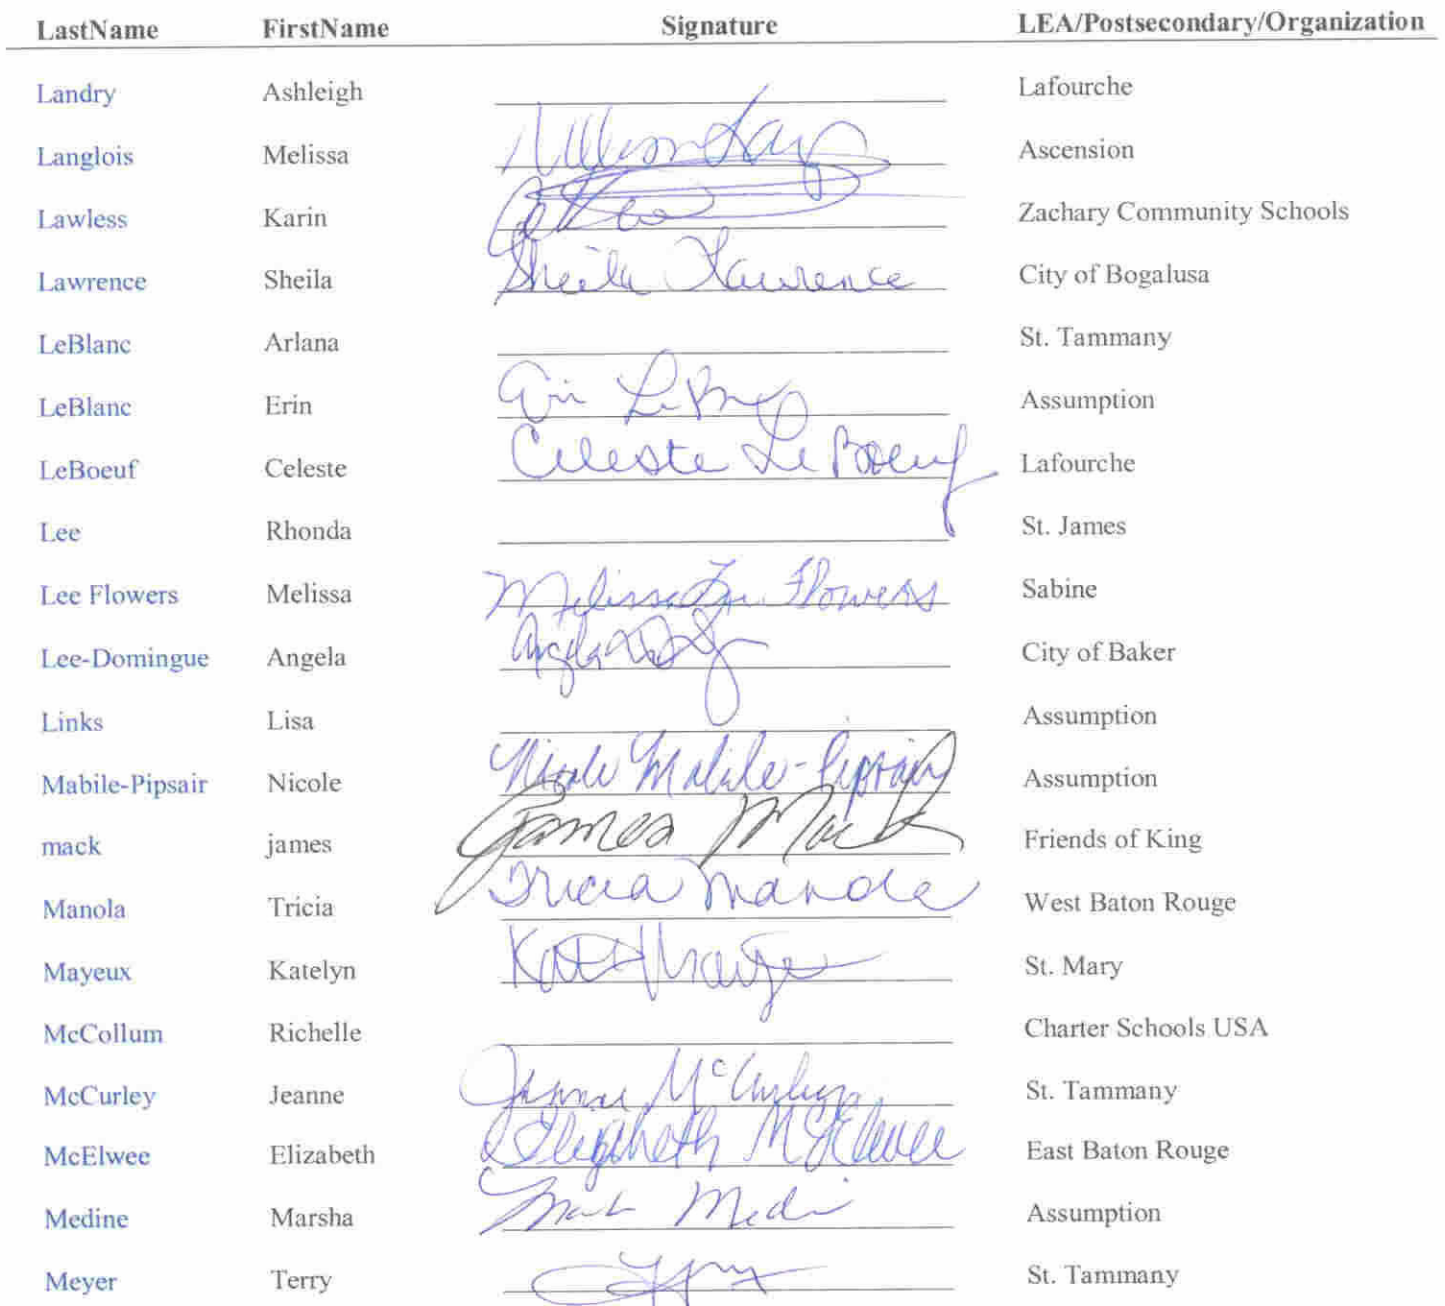 LastName FirstName Signature LEA/Postsecondary/Organization
Landry Ashleigh Lafourche
Langlois Melissa Ascension
Lawless Karin Zachary Community Schools
Lawrence Sheila Sheila Lawrence City of Bogalusa
LeBlanc Arlana St. Tammany
LeBlanc Erin Assumption
LeBoeuf Celeste Celeste LeBoeuf Lafourche
Lee Rhonda St. James
Lee Flowers Melissa Melissa Lee Flowers Sabine
Lee-Domingue Angela Angela City of Baker
Links Lisa Assumption
Mabile-Pipsair Nicole Nicole Mabile-Pipsair Assumption
mack james James Mack Friends of King
Manola Tricia Tricia Manola West Baton Rouge
Mayeux Katelyn St. Mary
McCollum Richelle Charter Schools USA
McCurley Jeanne Jeanne McCurley St. Tammany
McElwee Elizabeth Elizabeth McElwee East Baton Rouge
Medine Marsha Assumption
Meyer Terry St. Tammany